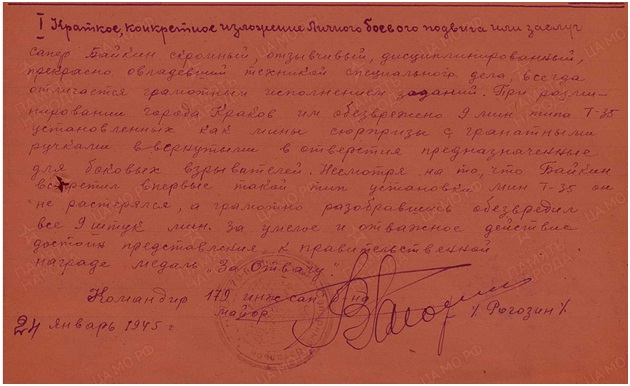 I Краткое, конкретное изложение личного боевого подвига или заслуг
Сапер Байкин скромный, отзывчивый, дисциплинированный,
прекрасно овладевший техникой специального дела, всегда
отличается грамотным исполнением заданий. При разми-
нировании города Краков им обезврежено 9 мин типа Т-35
установленных как мины сюрпризы с гранатными
ручками ввернутыми в отверстия предназначенные
для боковых взрывателей. Несмотря на то, что Байкин
встретил впервые такой тип установки мин Т-35 он
не растерялся, а грамотно разобравшись обезвредил
все 9 штук мин. За умелое и отважное действие
достоин представления к правительственной
награде медаль "За Отвагу".
Командир 179 инж сап б-на
майор / Рогозин /
24 январь 1945 г
ЦАМО РФ